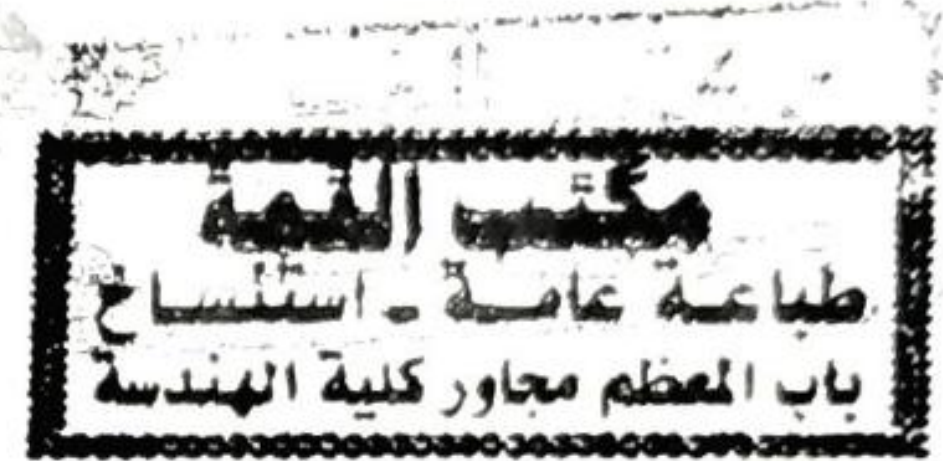 مكتب القمة
طباعة عامة - استنساخ
باب المعظم مجاور كلية الهندسة